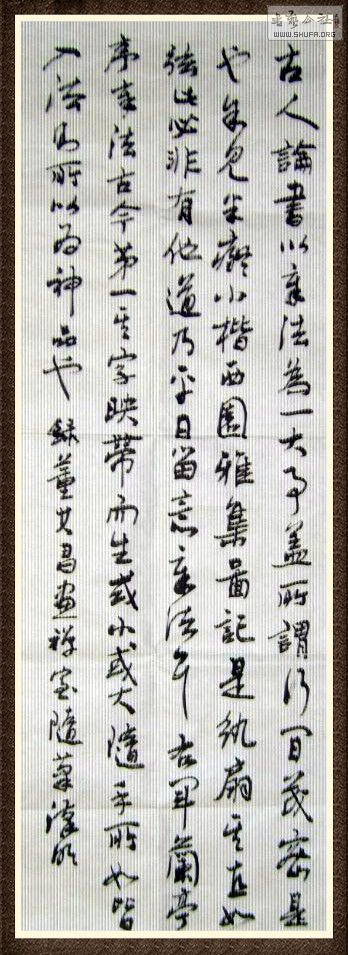 书艺公社
WWW.SHUFA.ORG
古人論書以章法為一大事蓋所謂行間茂密是
也余見米癡小楷西園雅集圖記是紈扇其直如
弦此必非有他道乃平日留意章法耳右軍蘭亭
序章法古今第一其字映帶而生或小或大隨手所如皆
入法則所以為神品也 錄董其昌畫禪室隨筆